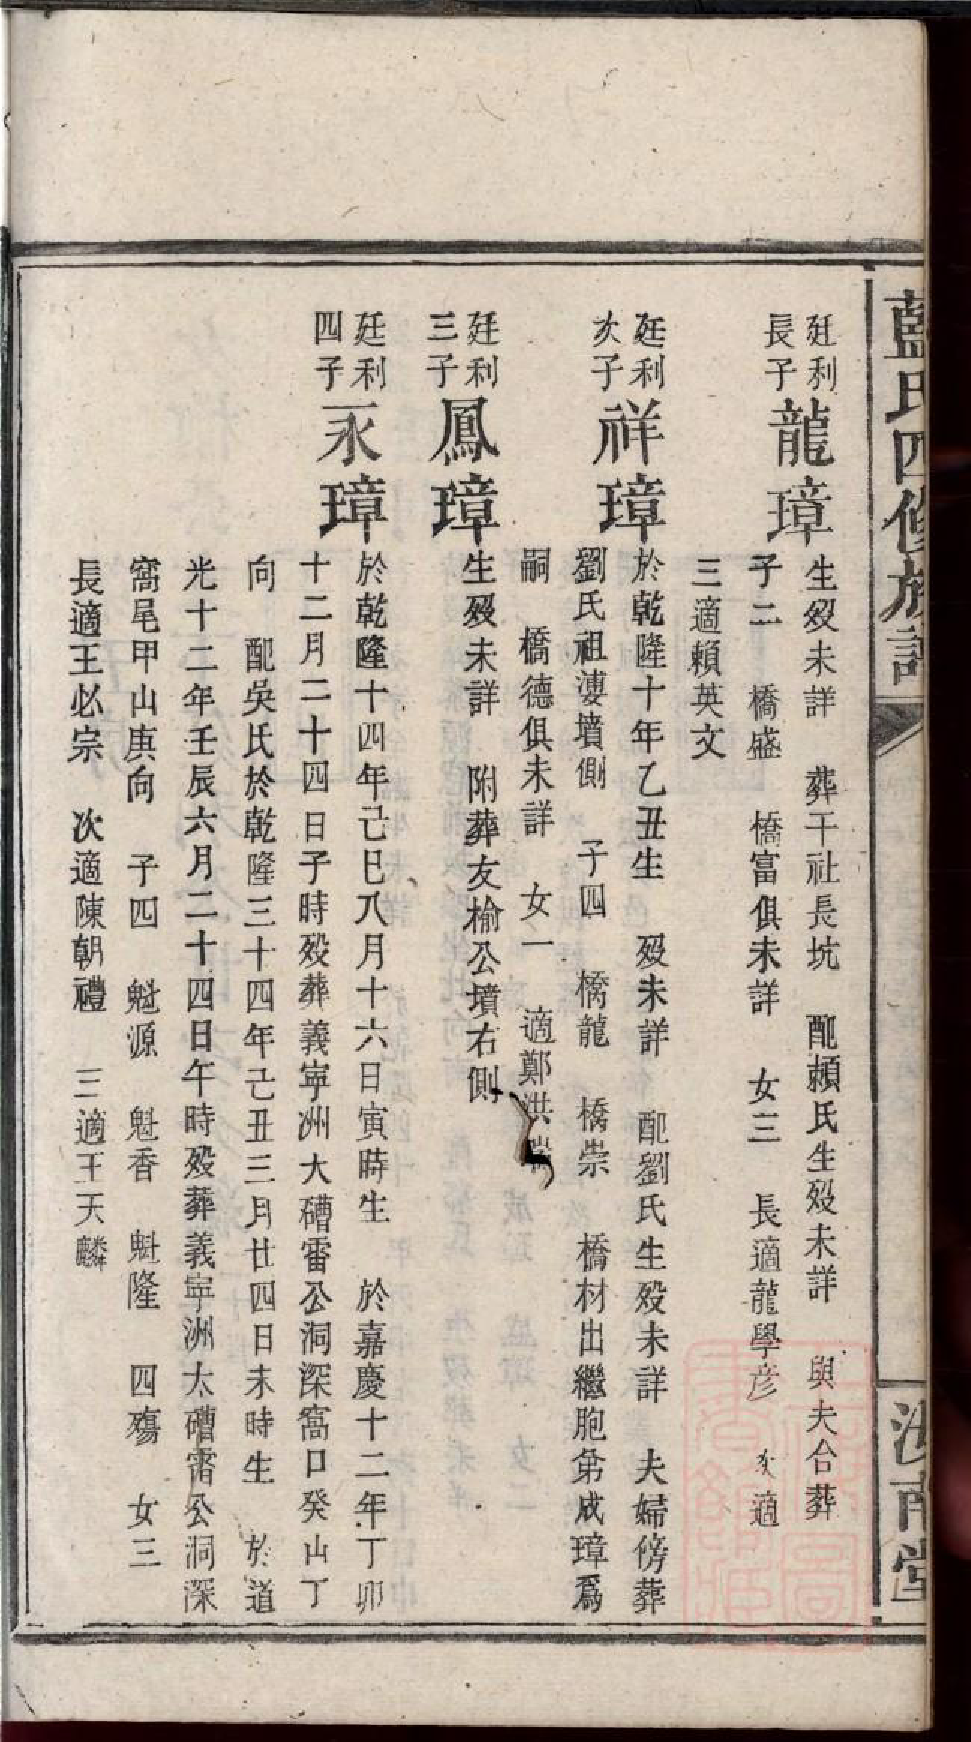 藍氏四修族譜
汝南堂
廷利
長子
龍璋
生歿未詳　葬干社長坑　配賴氏生歿未詳　與夫合葬
子二　橋盛　橋富俱未詳　女三　長適龍學彦　次適
三適賴英文
廷利
次子
祥璋
於乾隆十年乙丑生　歿未詳　配劉氏生歿未詳　夫婦傍葬
劉氏祖婆墳側　子四　橋龍　橋崇　橋材出繼胞弟成璋爲
嗣　橋德俱未詳　女一　適鄭洪
廷利
三子
鳳璋
生歿未詳　附葬友榆公墳右側
廷利
四子
永璋
於乾隆十四年己巳八月十六日寅時生　於嘉慶十二年丁卯
十二月二十四日子時歿葬義寧洲大磠雷公洞深窩口癸山丁
向　配吳氏於乾隆三十四年己丑三月廿四日未時生　於道
光十二年壬辰六月二十四日午時歿葬義寧洲大磠雷公洞深
窩尾甲山庚向　子四　魁源　魁香　魁隆　四殤　女三
長適王必宗　次適陳朝禮　三適王天麟